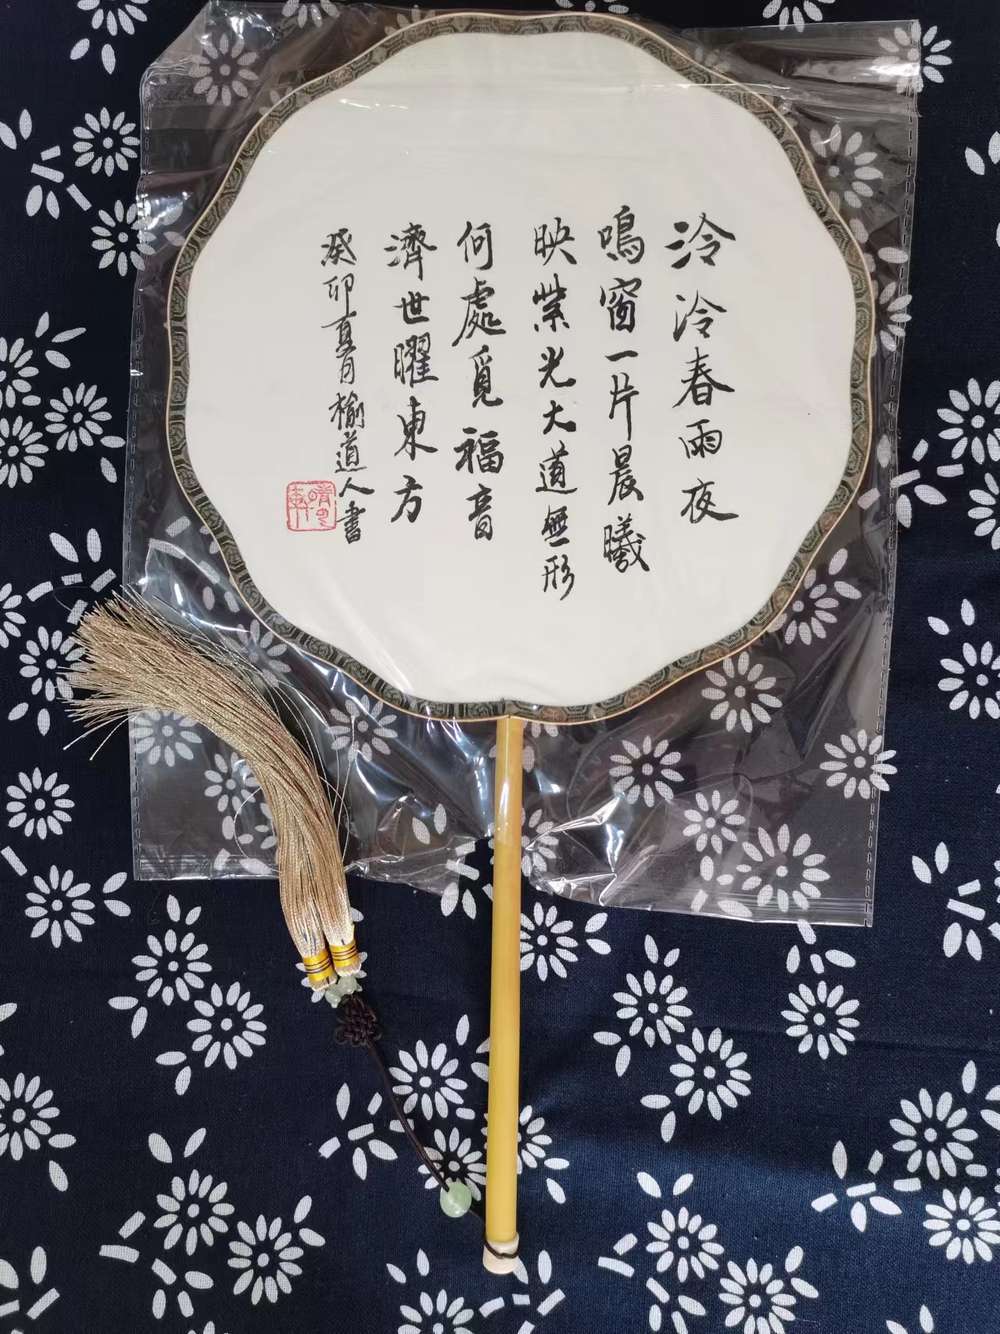 泠泠春雨夜
鳴窗一片晨曦
映紫光大道無形
何處覓福音
濟世曜東方
癸卯夏月榆道人書